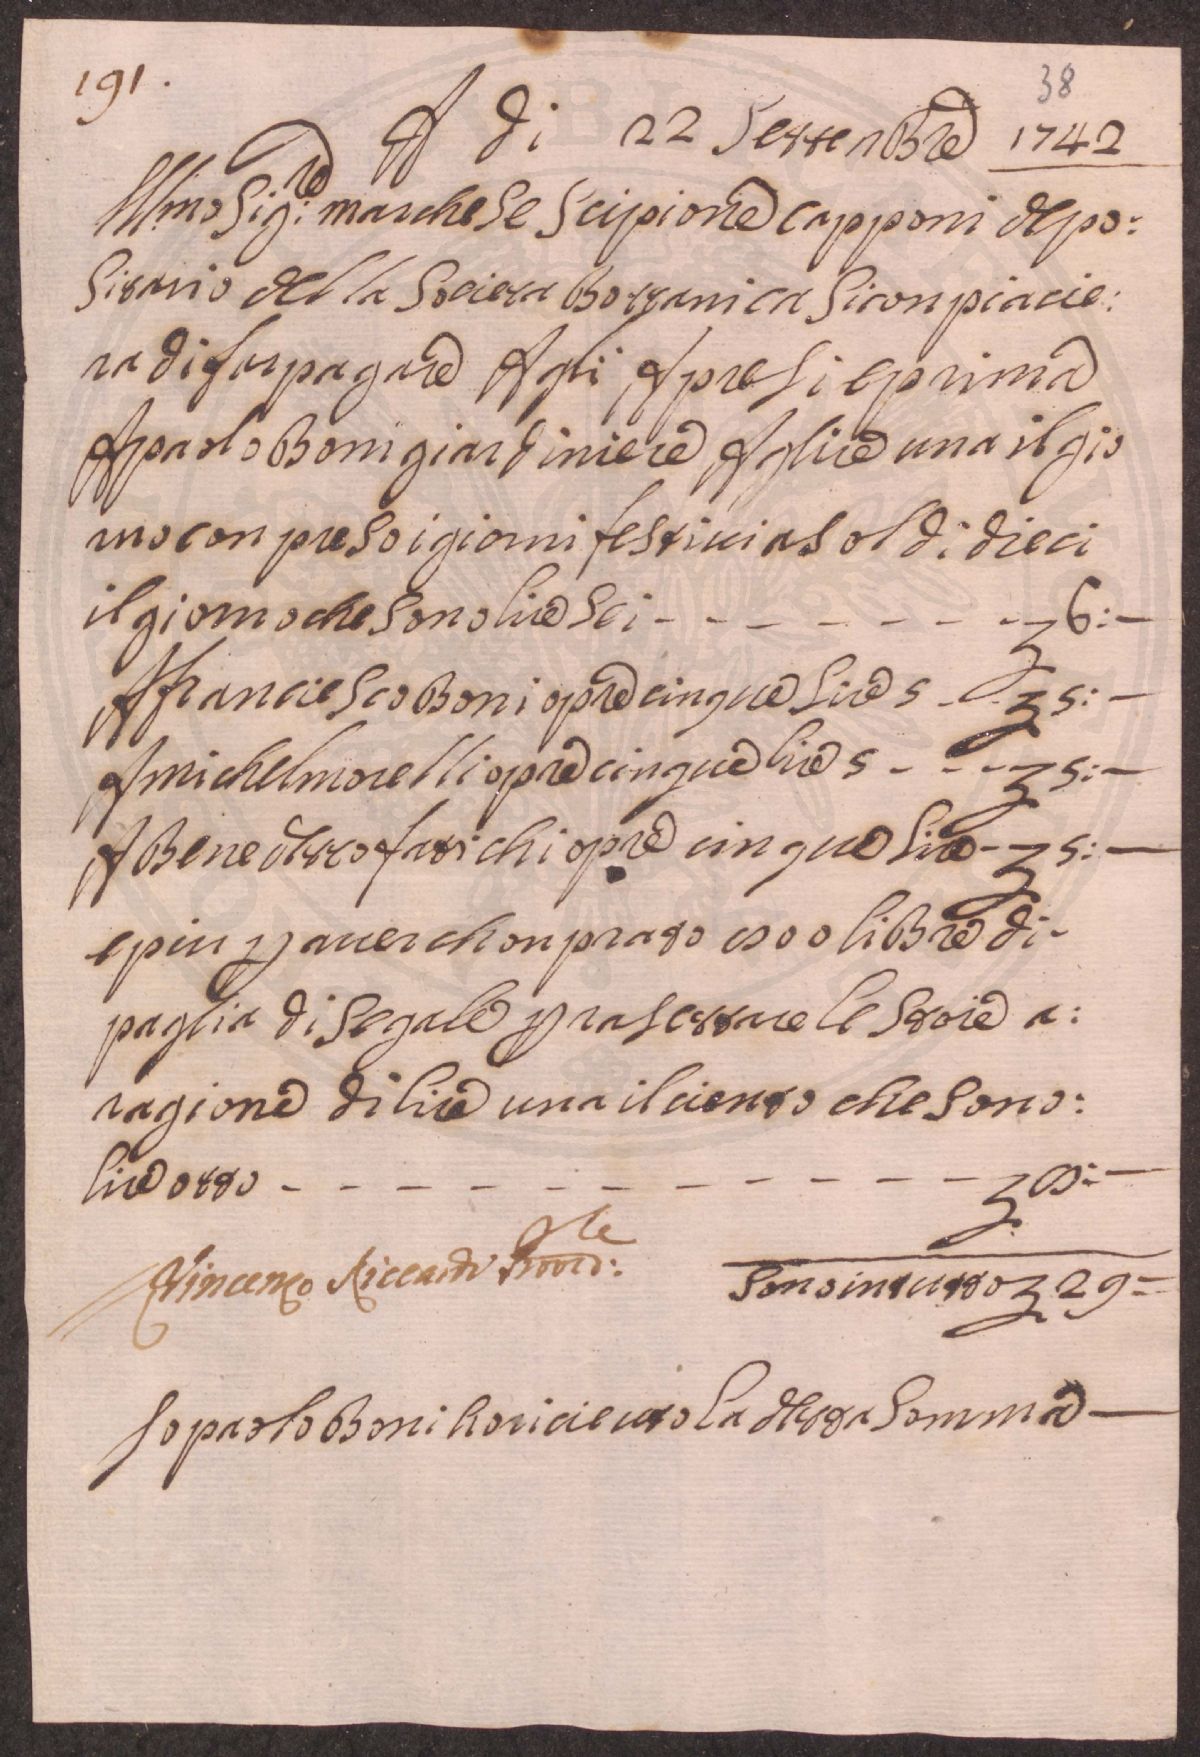 191.
38
A di 22 Settenbre 1742
Illmo Sig:re marchese Scipione Capponi depo:
sitario della Societa Bottanica si conpiacie:
ra di far pagare Agli Apresi e prima
A paolo Boni giardiniere A lire una il gio
rno con preso i giorni festivi a soldi dieci
il giorno che sono lire sei - - - - - - - - - - 6:-
A franciesco Boni opre cinque lire 5 - - - 5:-
A michel morelli opre cinque lire 5 - - - - 5:-
A Benedetto fatichi opre cinque lire - - 5:-
e piu p aver chonprato 800 libre di-
paglia di segale p rasettare le stoie a:
ragione di lire una il ciento che sono:
lire otto - - - - - - - - - - - - - - 8:-
Vincenzo Riccardi Provre:
Sono in tutto 29-
Io paolo Boni ho riceuto la detta somma -